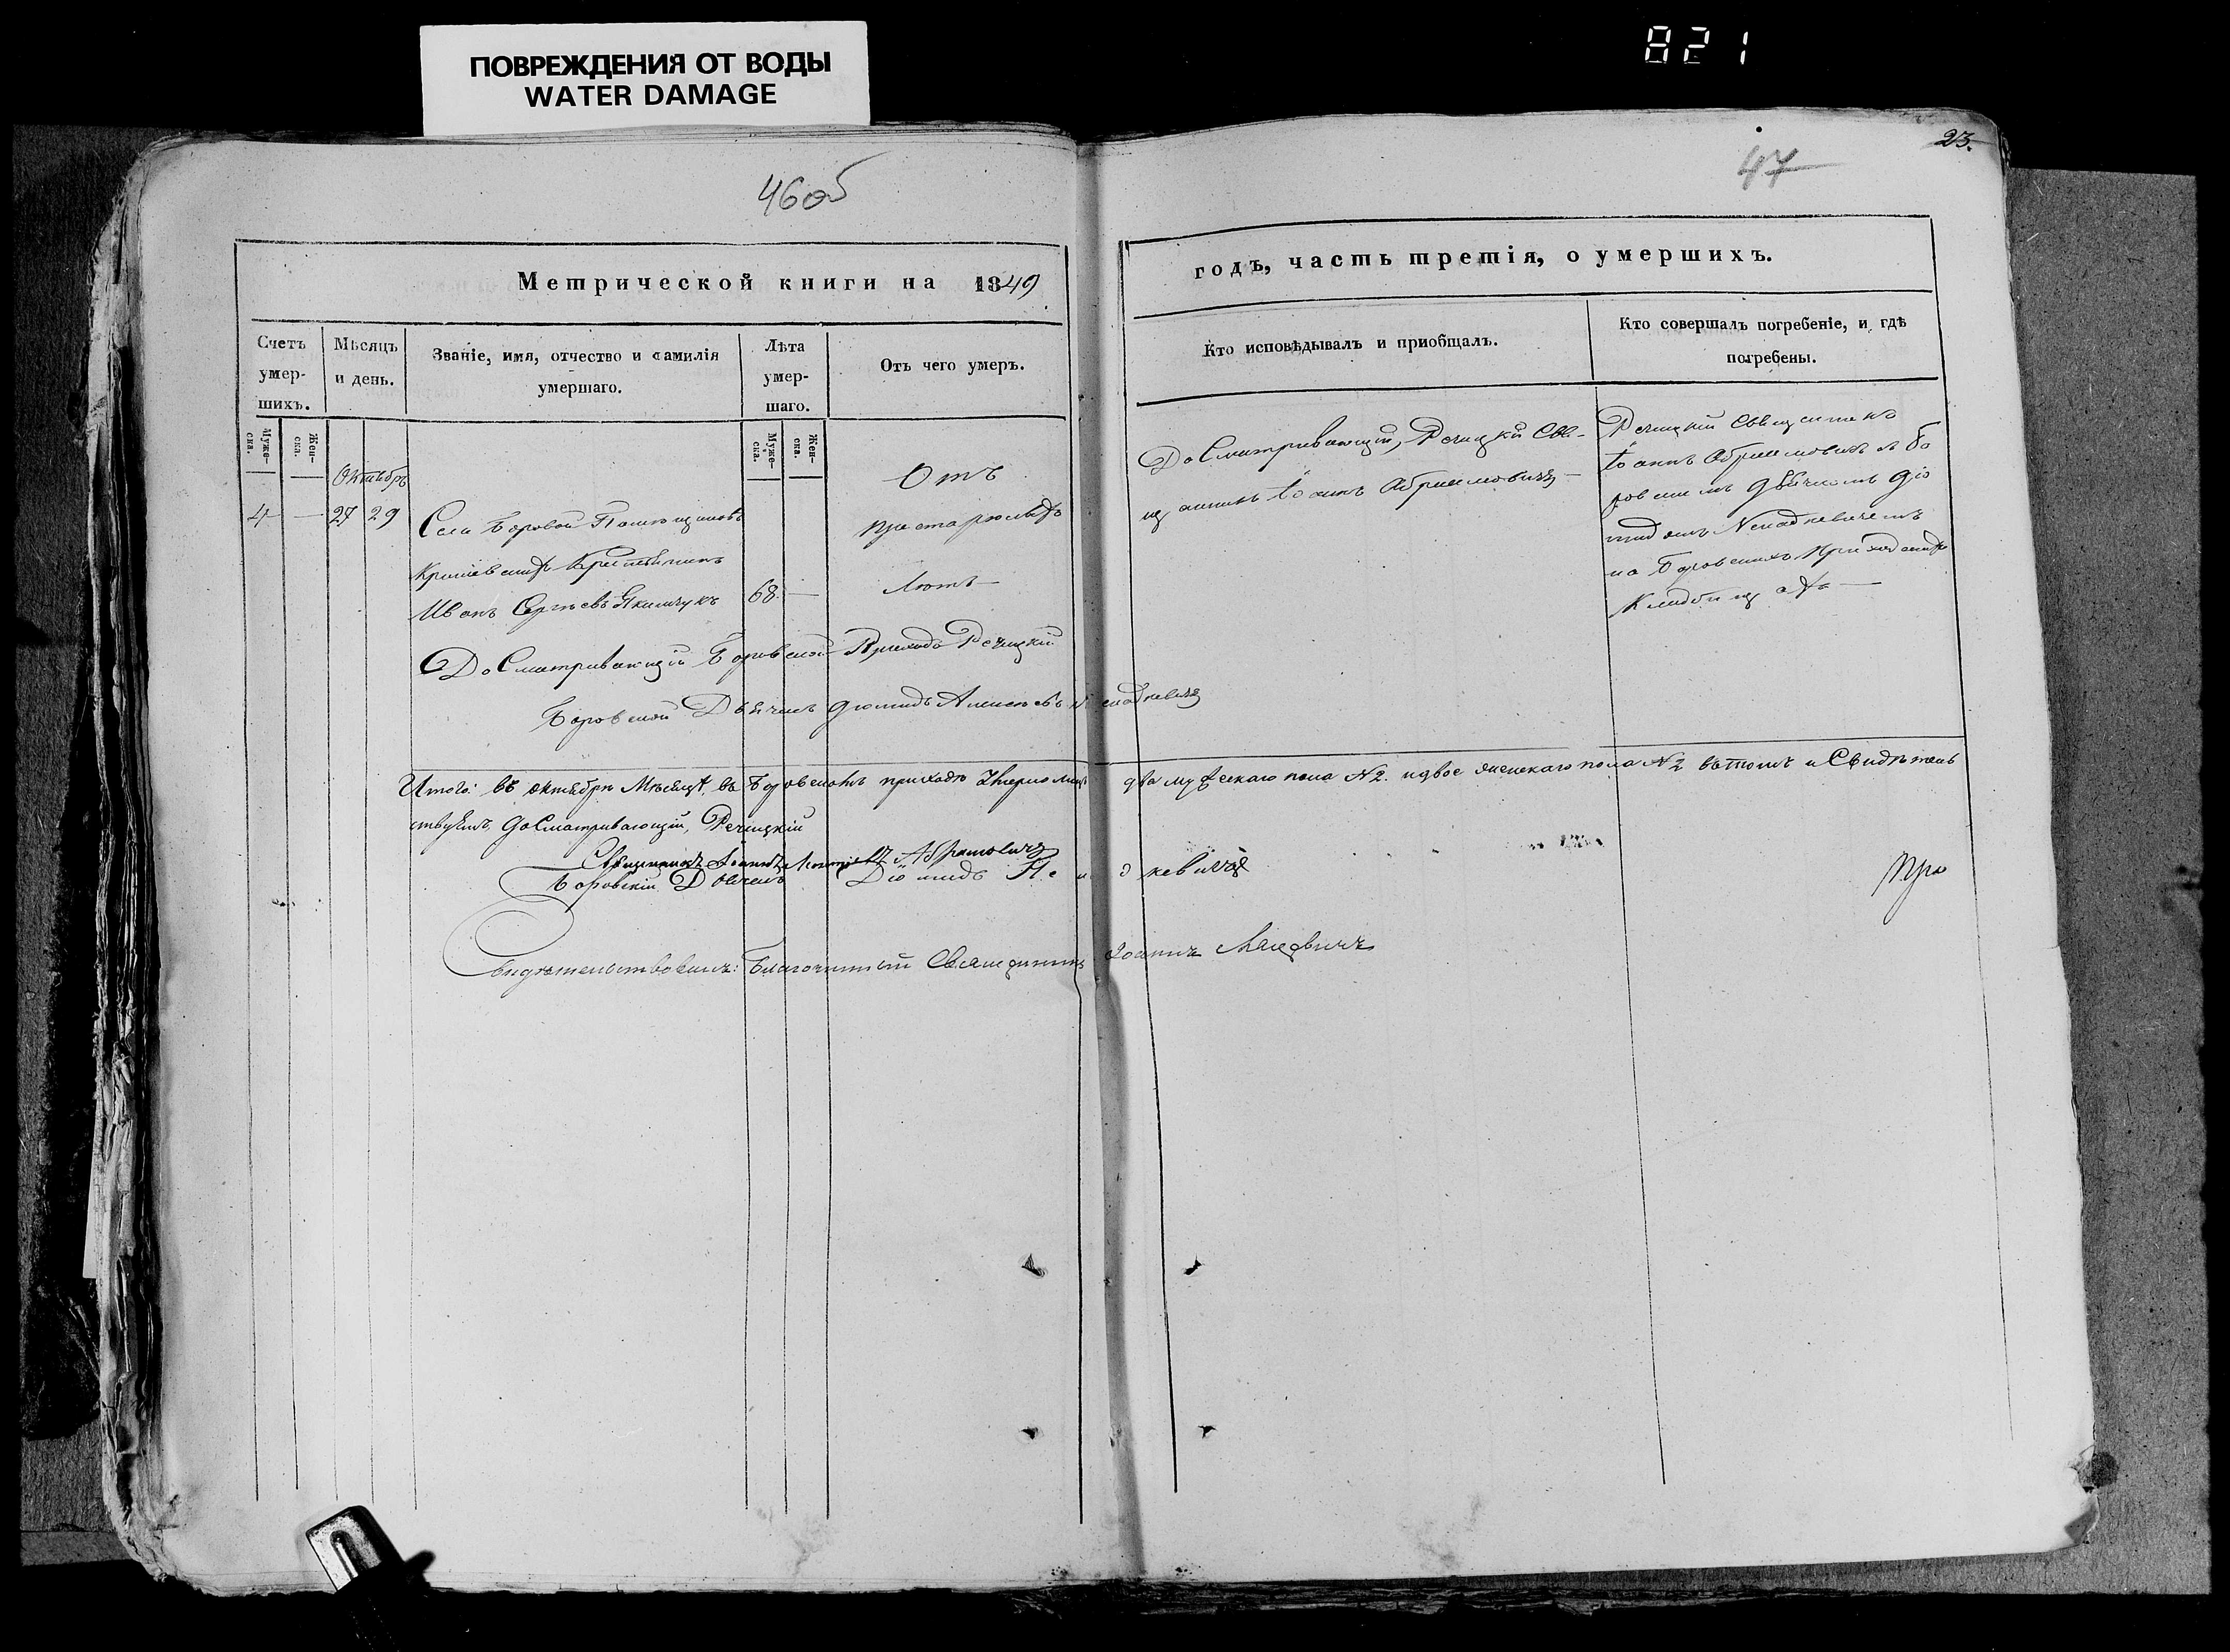 ПОВРЕЖДЕНИЯ ОТ ВОДЫ
WATER DAMAGE
821
46об
47
23.
Метрической книги на 1849
годъ, часть третія, о умершихъ.
Счетъ умер-шихъ.
Мѣсяцъ и день.
Званіе, имя, отчество и фамилія умершаго.
Лѣта умер-шаго.
Отъ чего умеръ.
Кто исповѣдывалъ и приобщалъ.
Кто совершалъ погребеніе, и гдѣ погребены.
Муже-ска.
Жен-ска.
Муже-ска.
Жен-ска.
Октябрь
4 — 27 29
Села Боровой
Крестьянинъ
Иванъ Сергѣевъ 68 —
Отъ
престарѣлыхъ
лѣтъ —
Досматривающій, Речицкій Свя-
щенникъ Іоаннъ Абрамовичъ —
Речицкій Священникъ
Іоаннъ Абрамовичъ съ Бо
ровскимъ Дьячкомъ Діо
мидомъ
на Боровскихъ Приходскихъ
Кладбищахъ —
Досматривающій Боровской Приходъ Речицкій
Боровской Дьячекъ Діомидъ Алексѣевъ
Итого: въ октябрѣ Мѣсяцѣ въ Боровскомъ приходѣ Умерло два мужескаго пола №2. и двое женскаго пола №2 въ томъ и Свидѣтель
ствуемъ, Досматривающій, Речицкій
Священникъ Іоаннъ Абрамовичъ
Боровскій Дьячекъ Діомидъ
При
Свидѣтельствовалъ: Благочинный Священникъ Іоаннъ